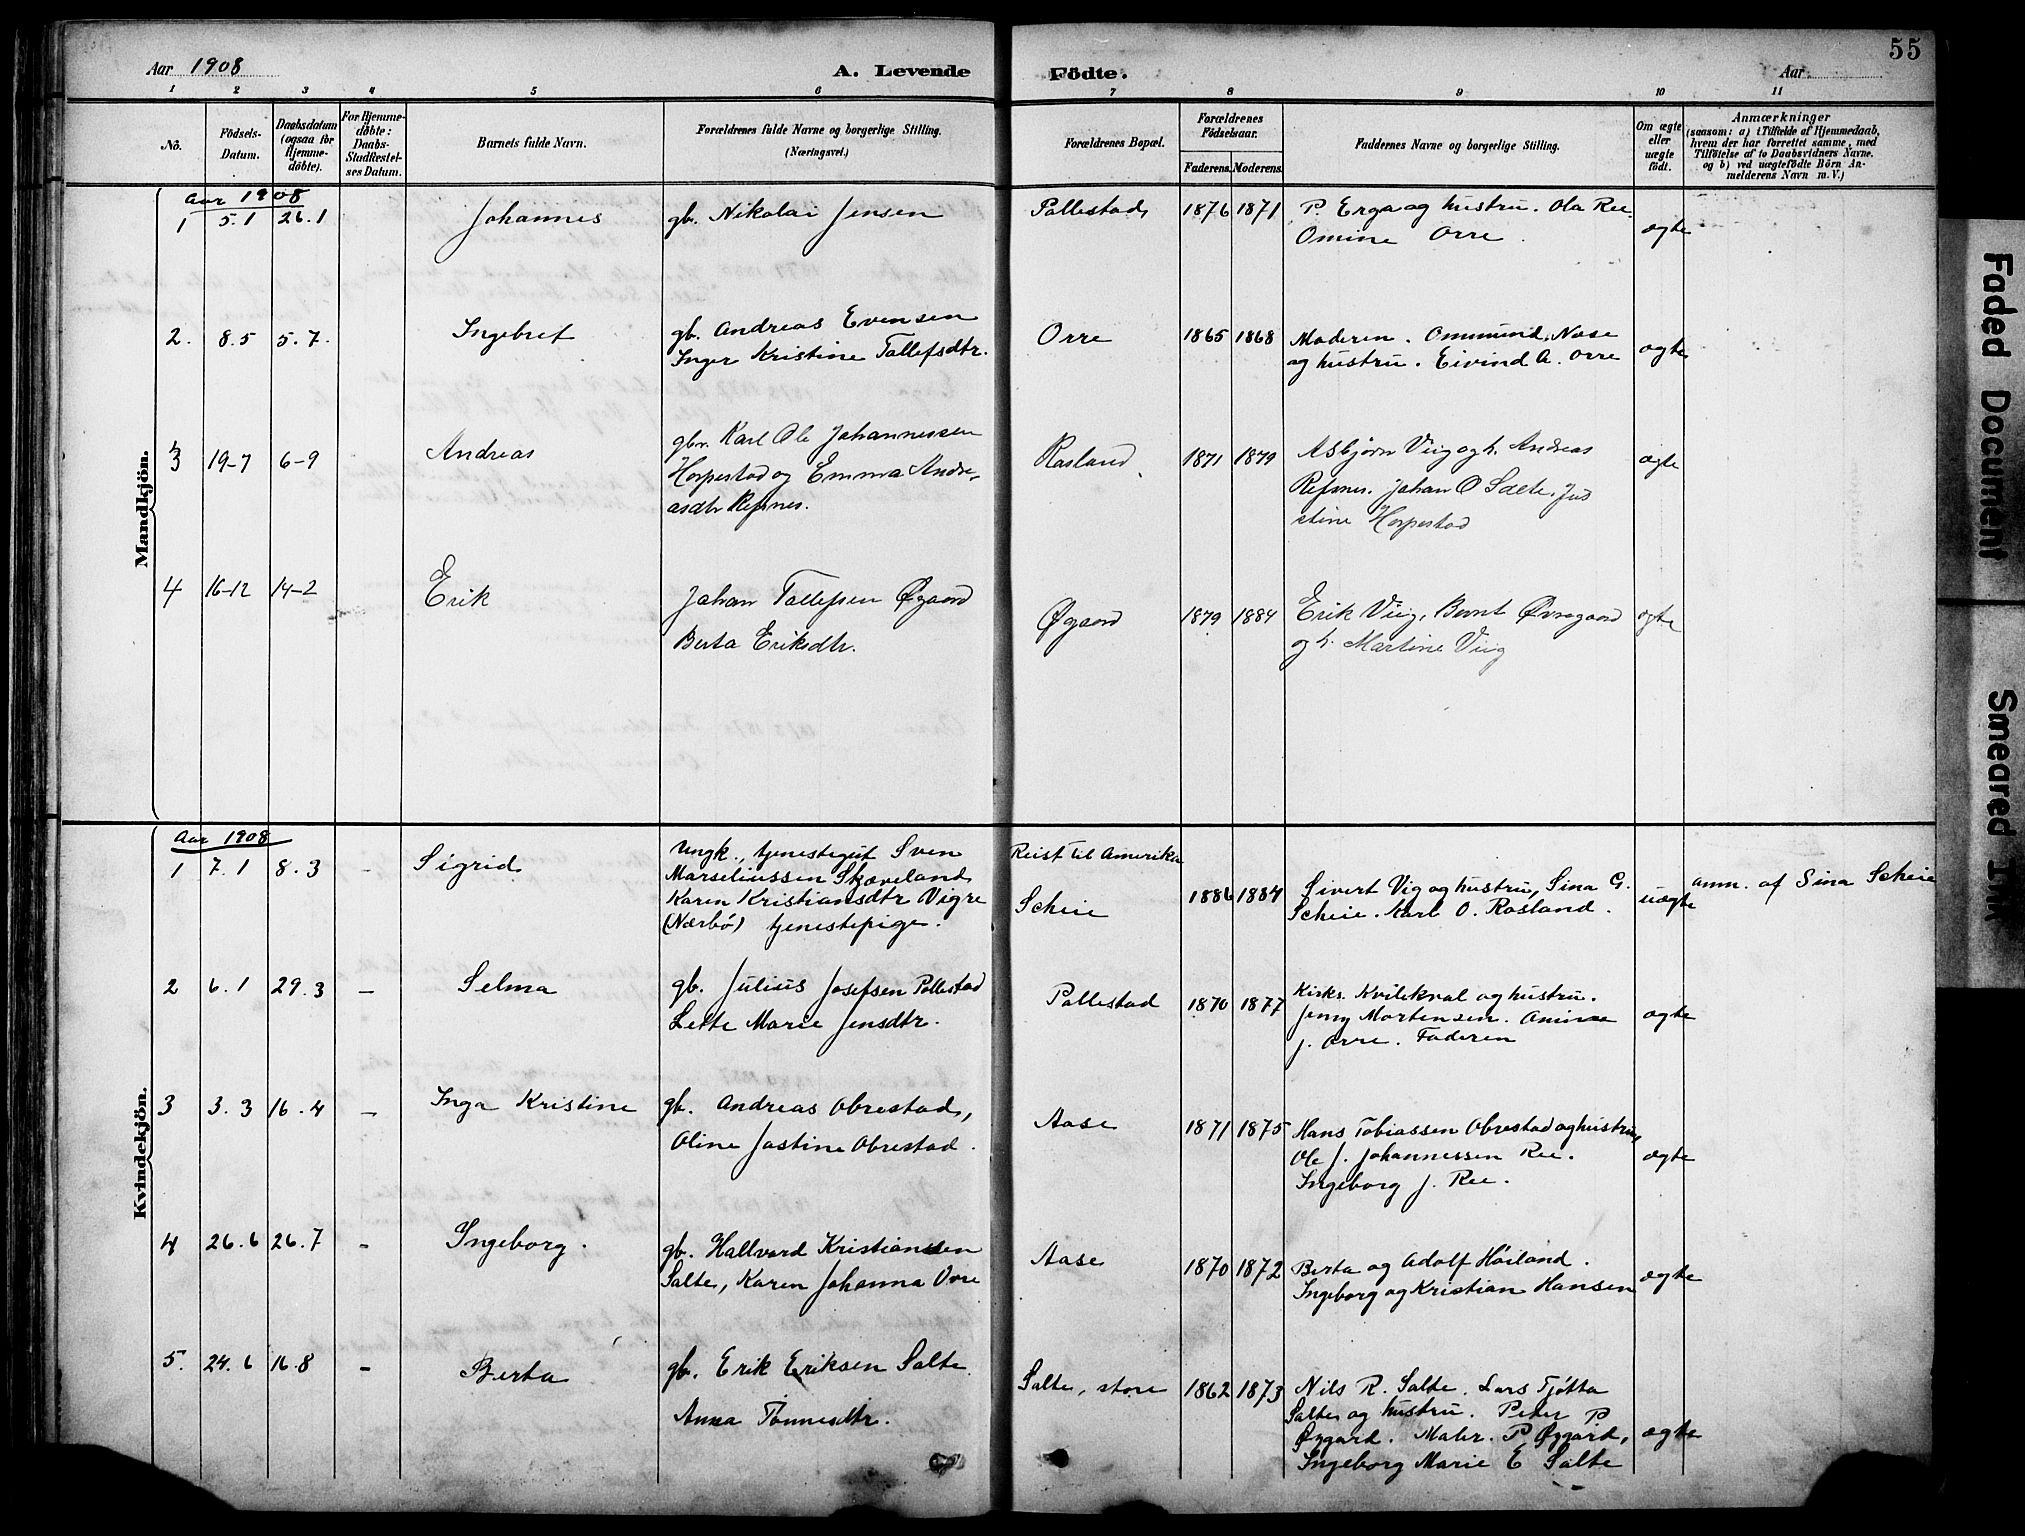 55
Aar 1908
A. Levende Födte.
Aar
1 2 3 4 5 6 7 8 9 10 11
Nô.
Födsels-
Datum.
Daabsdatum
(ogsaa for
Hjemme-
döbte).
For Hjemme-
döbte:
Daabs-
Stadfæstel-
ses Datum.
Barnets fulde Navn.
Forældrenes fulde Navne og borgerlige Stilling.
(Næringsvei.)
Forældrenes Bopæl.
Forældrenes
Födselsaar.
Faderens. Moderens.
Faddernes Navne og borgerlige Stilling.
Om ægte
eller
uægte
födt.
Anmærkninger
(saasom: a) i Tilfælde af Hjemmedaab,
hvem der har forrettet samme, med
Tilföielse af to Daabsvidners Navne.
og b) ved uægtefödte Börn An-
melderens Navn m. V.)
Mandkjön.
Aar 1908
1 5.1 26.1 Johannes gb. Nikolai Jensen Pollestad 1876 1871 P. Erga og hustru. Ola Ree
Omine Orre ægte
2. 8.5 5.7. Ingebret gb. Andreas Evensen Orre 1865 1868 Moderen. Ommund Næse
Inger Kristine Tollefsdtr. og hustru. Eivind A. Orre ægte
3 19-7 6-9 Andreas gbr. Karl Ole Johannessen Rosland 1871 1879 Asbjørn Viig og h. Andreas ægte
Horpestad og Emma Andre-
asdtr Refsnes. Refsnes. Johan O Salte. Jus
stine Horpestad
4 16-12 14-2 Erik Johan Tollefsen Øgaard Øgaard 1879 1884 Erik Viig, Bernt Øvregaard ægte
Berta Eriksdtr. og h. Martine Viig
Kvindekjön.
Aar 1908
1 7.1 8.3 - Sigrid Ungk., tjenestegut Sven Reist til Amerika
Marseliussen Skæveland
Karen Kristiansdtr Vigre Scheie 1886 1884 Sivert Vig og hustru, Sina G. uægte anm. af Sina Scheie
(Nærbø) tjenestepige. Scheie. Karl O. Rosland.
2 6.1 29.3 - Selma gb. Julius Josefsen Pollestad Pollestad 1870 1877 Kirks. Kvilekval og hustru. ægte
Lette Marie Jensdtr. Jenny Mortensen. Omine
J. Orre. Faderen
3 3.3 16.4 - Inga Kristine gb. Andreas Obrestad, Aase 1871 1875 Hans Tobiassen Obrestad og hustru,
Oline Jostine Obrestad. Ole J. Johannessen Ree. ægte
Ingeborg J. Ree.
4 26.6 26.7 - Ingeborg. gb. Hallvard Kristianssen Aase 1870 1872 Berta og Adolf Höiland. ægte
Salte, Karen Johanna Orre Ingeborg og Kristian Hansen
5. 24.6 16.8 - Berta gb. Erik Eriksen Salte Salte, store 1862 1873 Nils R. Salte. Lars Tjøtta
Anna Tönnesdtr. Salte og hustru. Peter P
Øygard. Malr. P Øygard, ægte
Ingeborg Marie E Salte
Faded Document
Smeared Ink